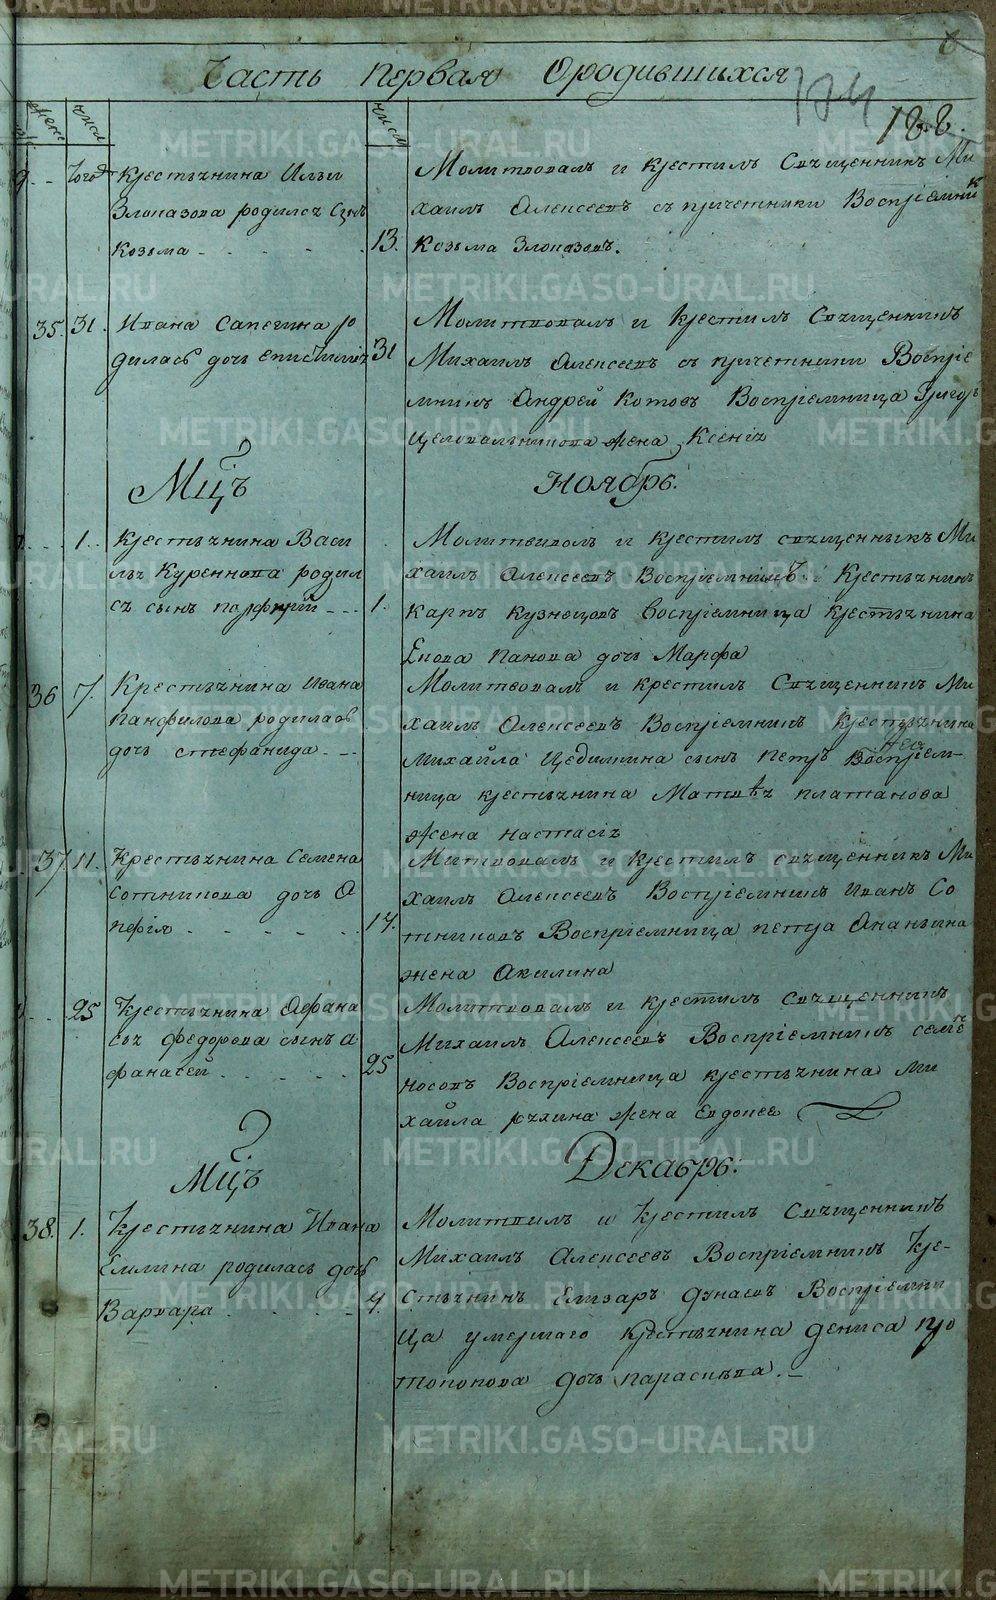 Часть первая Ородившихся
124
188.
женс числ числ
Крестьянина Ильи
Злоказова родился сынъ
Козьма 13.
Молитвовалъ и крестилъ Священникъ Ми
хаилъ Алексеевъ съ причетники Восприемникъ
Козьма Злоказовъ.
35. 31. Ивана Сапегина ро
дилась дочь епистимия 31
Молитвовалъ и крестилъ Священникъ
Михаилъ Алексеевъ съ причетники Восприе
мникъ Андрей Котовъ Восприемница Григорья
Целовальникова жена Ксения
Мцъ Ноябрь:
1. Крестьянина Васи
лья Куреннова родил
ся сынъ порфирий 1.
Молитвовалъ и крестилъ священникъ Ми
хаилъ Алексеевъ Восприемникъ Крестьянинъ
карпъ кузнецовъ восприемница крестьянина
панова дочь Марфа
36 7. Крестьянина Ивана
Панфилова родилась
дочь стефанида
Молитвовалъ и крестилъ Священникъ Ми
хаилъ Алексеевъ Восприемникъ крестьянина
михайла сынъ петръ Восприем-
ница крестьянина Матвея платанова
жена настасия
37 11. Крестьянина Семена
Сотникова дочь А
пфия 14.
Митвовалъ и крестилъ священникъ Ми
хаилъ Алексеевъ Восприемникъ иванъ Со
тниковъ Восприемница петра Ананьина
жена Акилина
25 Крестьянина Афана
сья федорова сынъ а
фанасей 25
Молитвовалъ и крестилъ священникъ
Михаилъ Алексеевъ Восприемникъ семенъ
носовъ Восприемница крестьянина ми
хайла жена Евдокея
Мцъ Декабрь:
38. 1. Крестьянина Ивана
Емлина родилась дочь
Варвара 4.
Молитвилъ и крестилъ Священникъ
Михаилъ Алексеевъ Восприемникъ кре-
стьянинъ Елизаръ дунаевъ Восприемни
ца умершаго крестьянина дениса про
топопова дочь парасковья.
METRIKI.GASO-URAL.RU